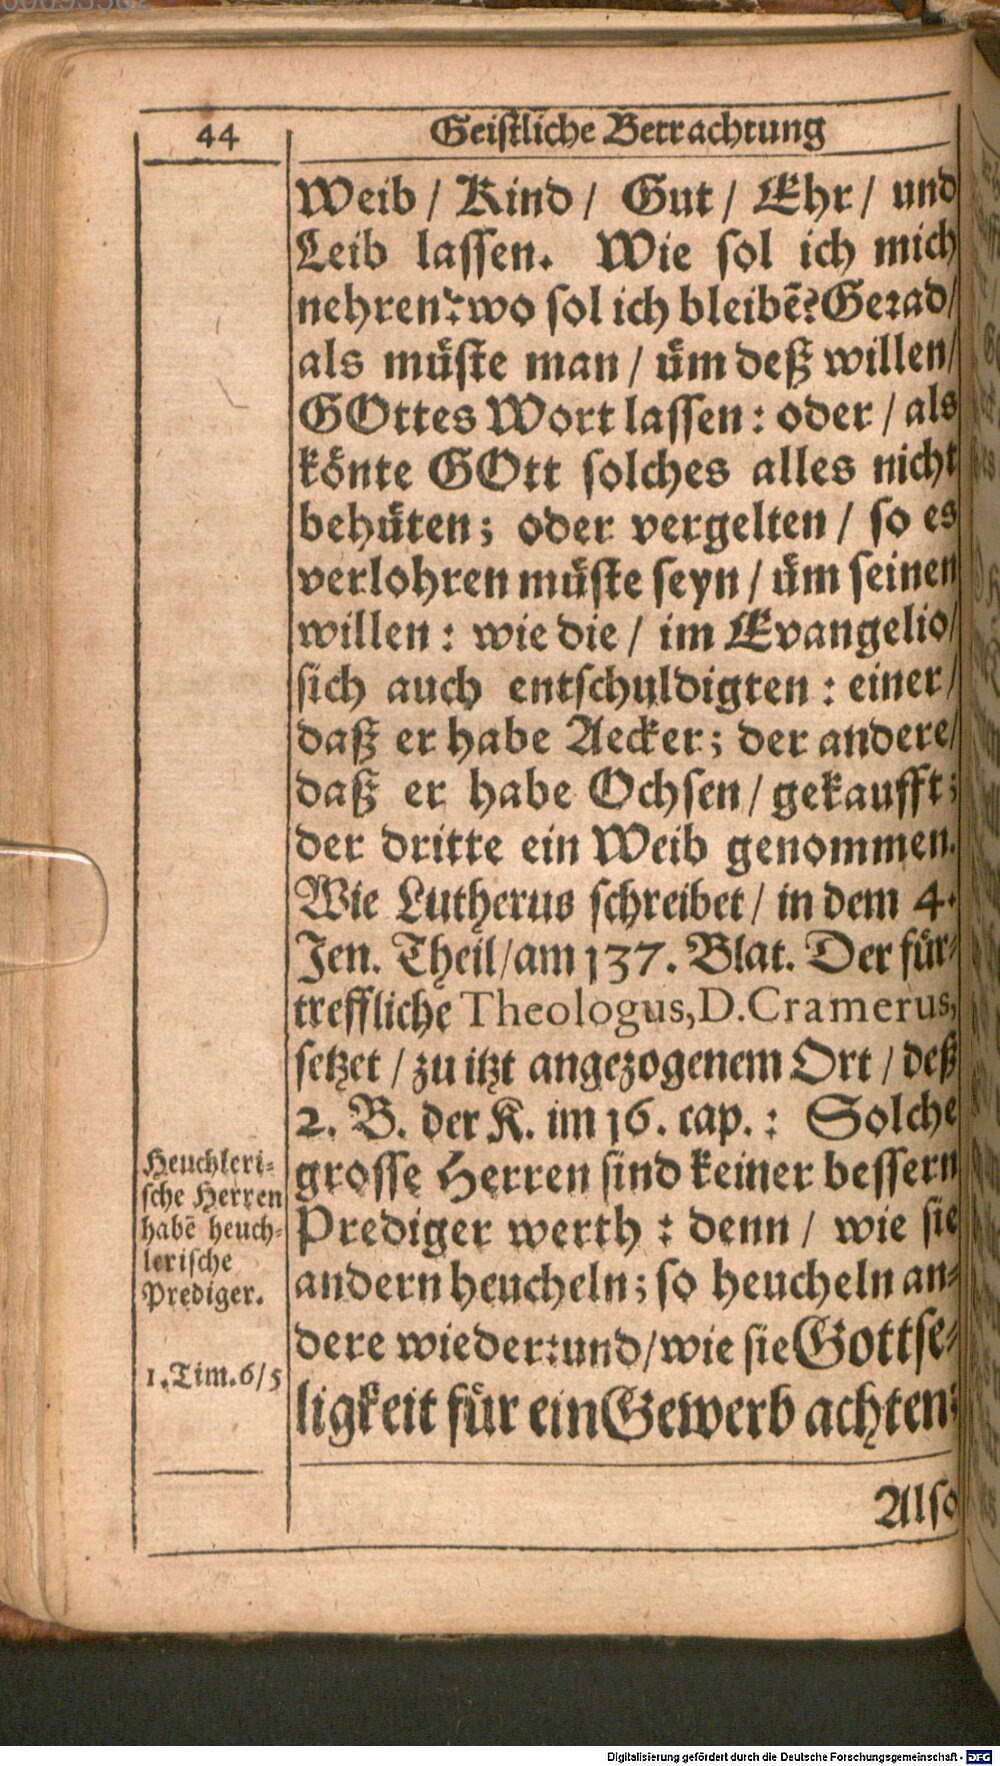 44
Geistliche Betrachtung
Weib / Kind / Gut / Ehr / und
Leib lassen. Wie sol ich mich
nehren? wo sol ich bleibẽ? Gerad/
als müste man / üm deß willen/
GOttes Wort lassen: oder / als
könte GOtt solches alles nicht
behüten; oder vergelten / so es
verlohren müste seyn / üm seinen
willen: wie die / im Evangelio/
sich auch entschuldigten: einer/
daß er habe Aecker; der andere/
daß er habe Ochsen / gekaufft;
der dritte ein Weib genommen.
Wie Lutherus schreibet / in dem 4.
Jen. Theil/am 137. Blat. Der für-
treffliche Theologus, D. Cramerus,
setzet / zu itzt angezogenem Ort / deß
2. B. der K. im 16. cap.: Solche
grosse Herren sind keiner bessern
Prediger werth: denn / wie sie
andern heucheln; so heucheln an-
dere wieder: und/wie sie Gottse-
ligkeit für ein Gewerb achten;
Also
Heuchleri-
sche Herren
habẽ heuch-
lerische
Prediger.
1. Tim. 6/5
Digitalisierung gefördert durch die Deutsche Forschungsgemeinschaft - DFG